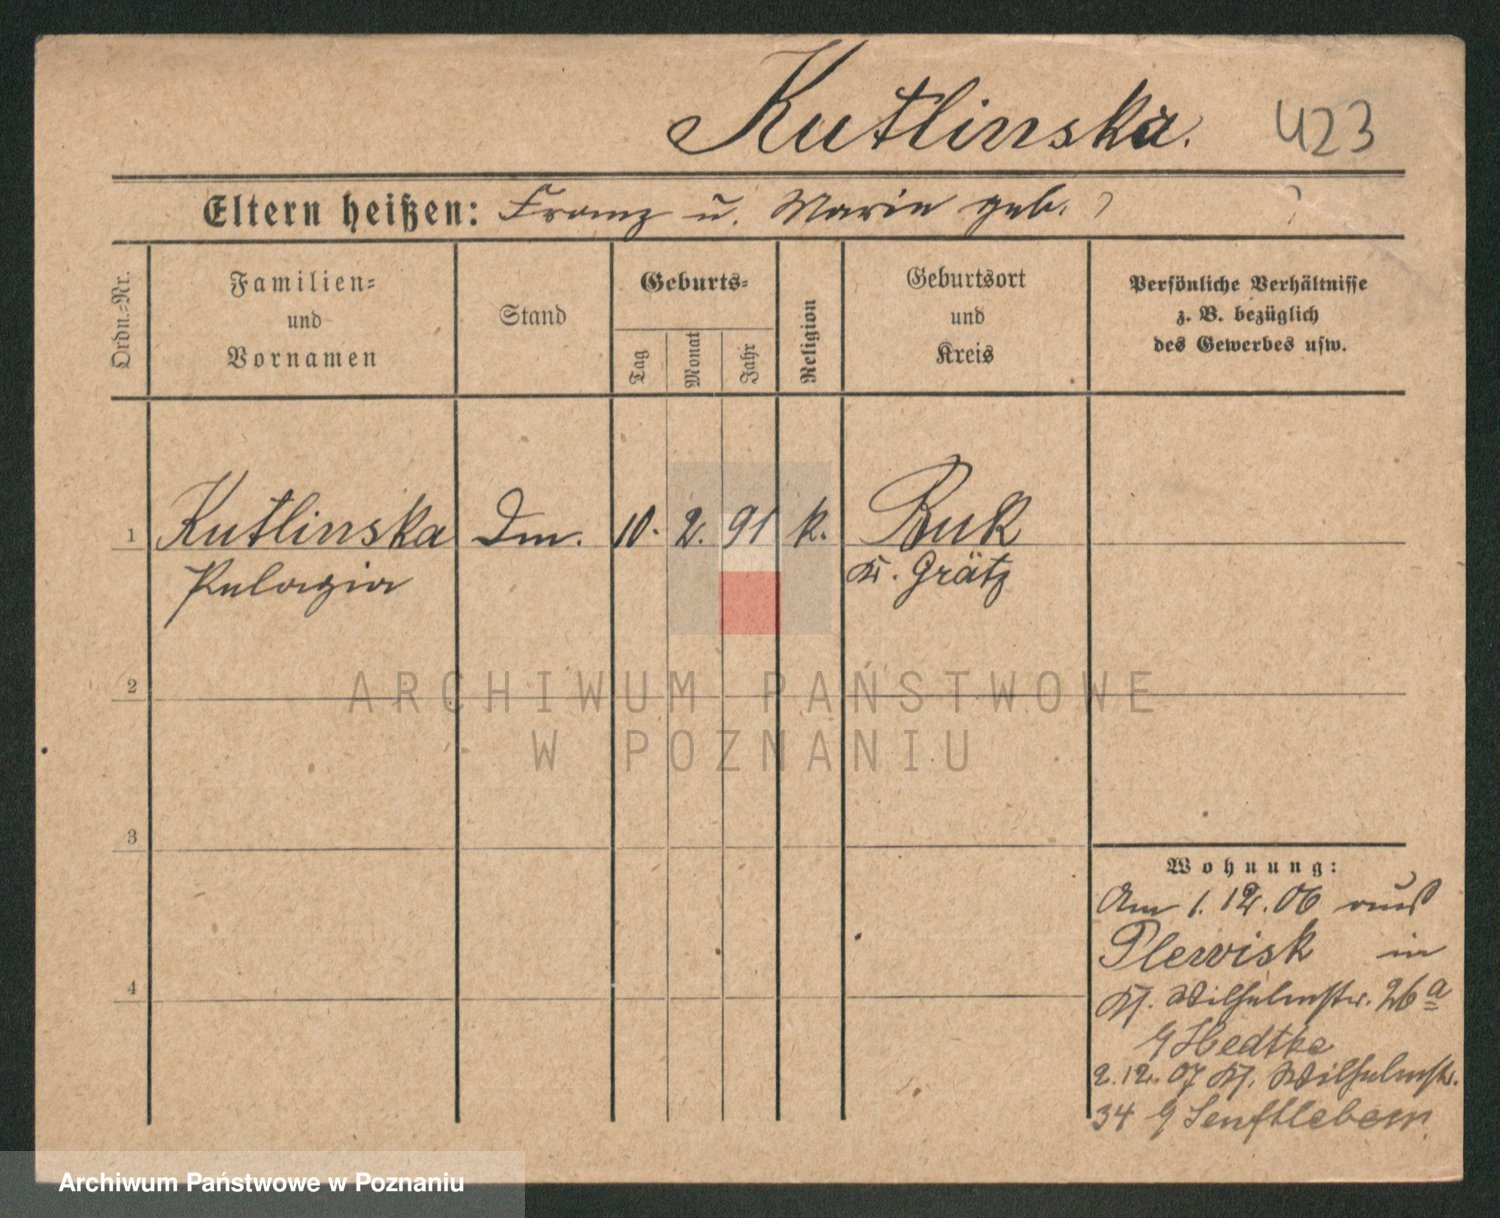 Kutlinska. 423
Eltern heißen: Franz u. Marie geb. ? ?
Ordn.-Nr.
Familien-
und
Vornamen
Stand
Geburts-
Tag
Monat
Jahr
Religion
Geburtsort
und
Kreis
Persönliche Verhältnisse
z. B. bezüglich
des Gewerbes usw.
1 Kutlinska Dm. 10. 2. 91 k. Buk
Pelagia Kr. Grätz
2
ARCHIWUM PAŃSTWOWE
W POZNANIU
3
Wohnung:
Am 1. 12. 06 aus
Plewisk in
4
Wilhelmstr. 26a
Hedtke
2. 12. 07 Wilhelmstr.
34 Senftleben
Archiwum Państwowe w Poznaniu